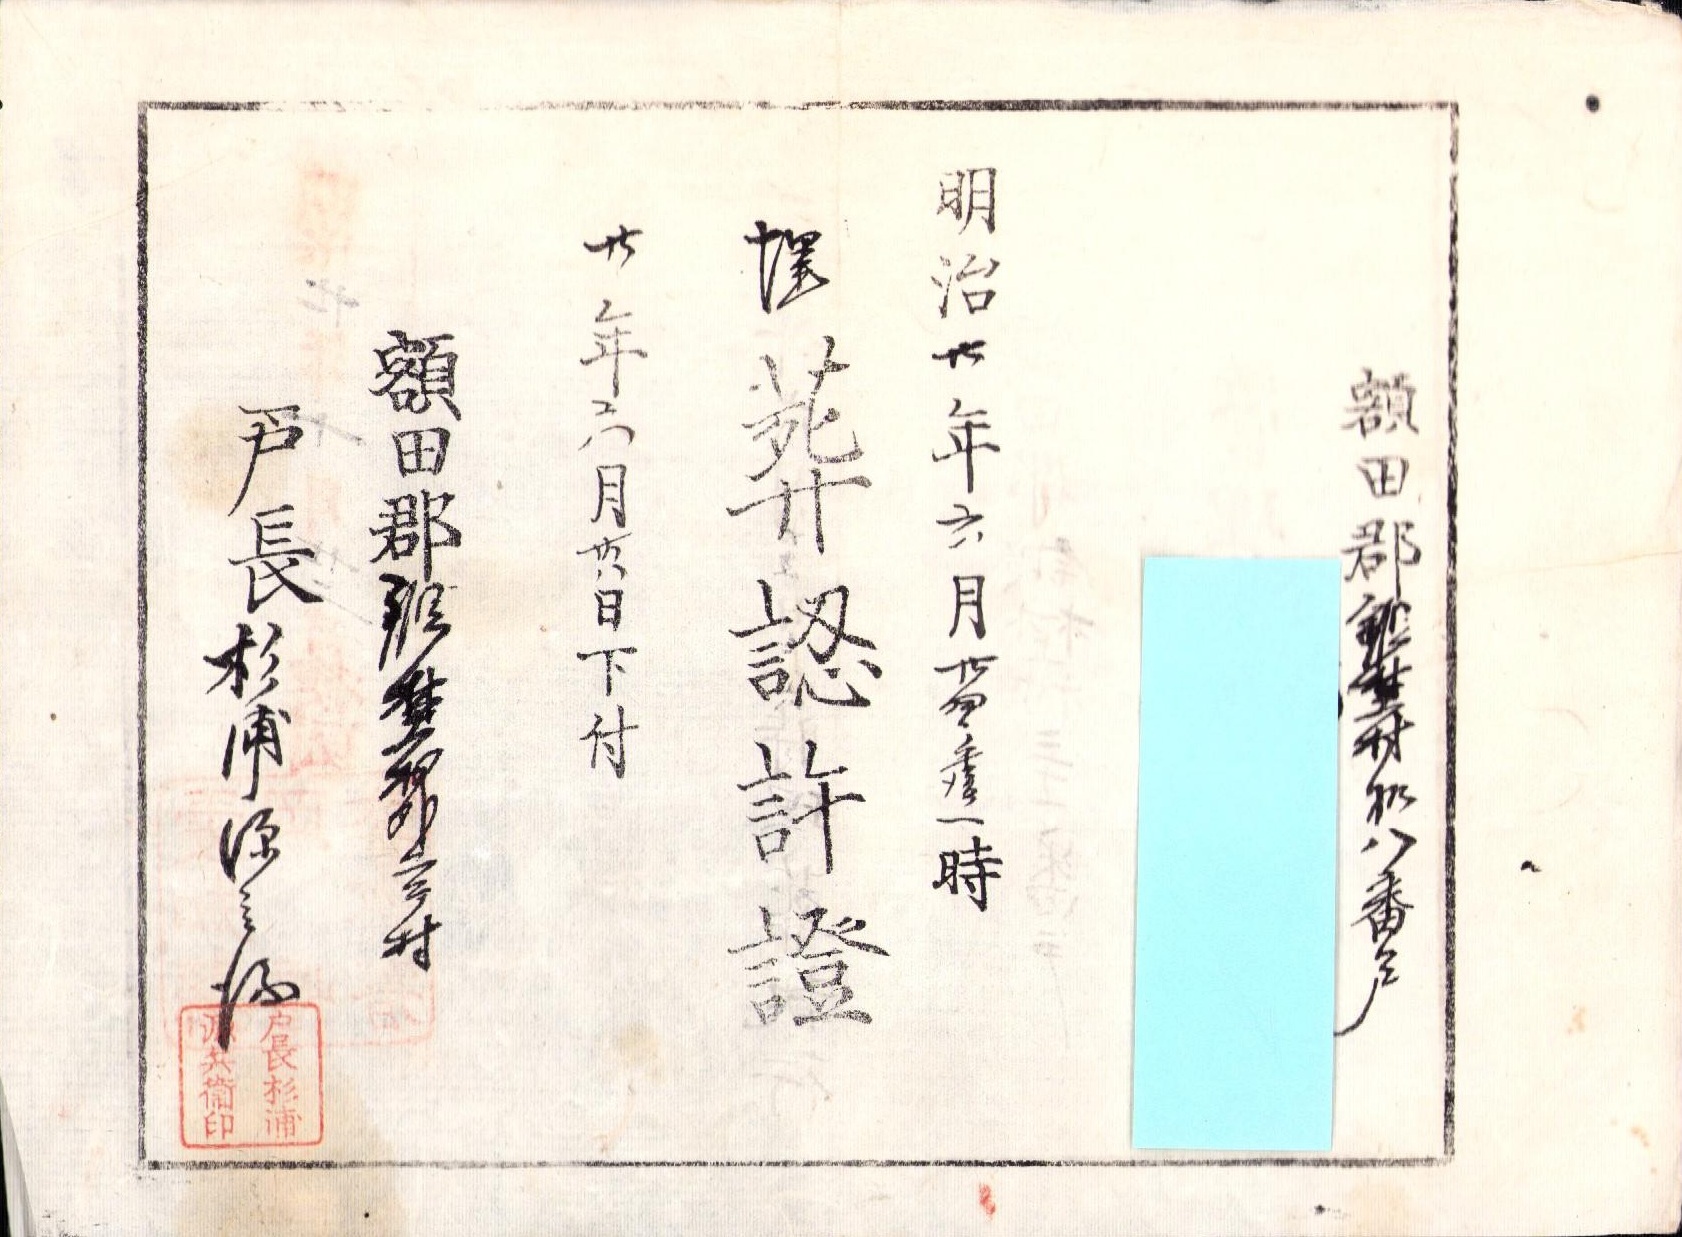 額田郡 村 八番戸
明治廿年六月廿 一時
埋葬認許證
廿年六月廿六日下付
額田郡 村
戸長杉浦
戸長杉浦
源兵衛印